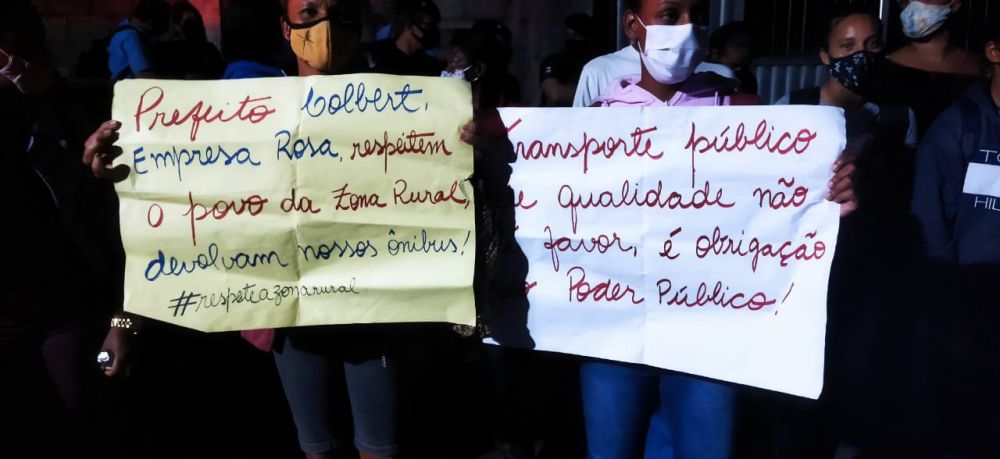 Prefeito Colbert,
Empresa Rosa, respeitem
o povo da Zona Rural,
devolvam nossos ônibus!
#respeiteazonarural
transporte público
e qualidade não
favor, é obrigação
Poder Público!
TO
HIL